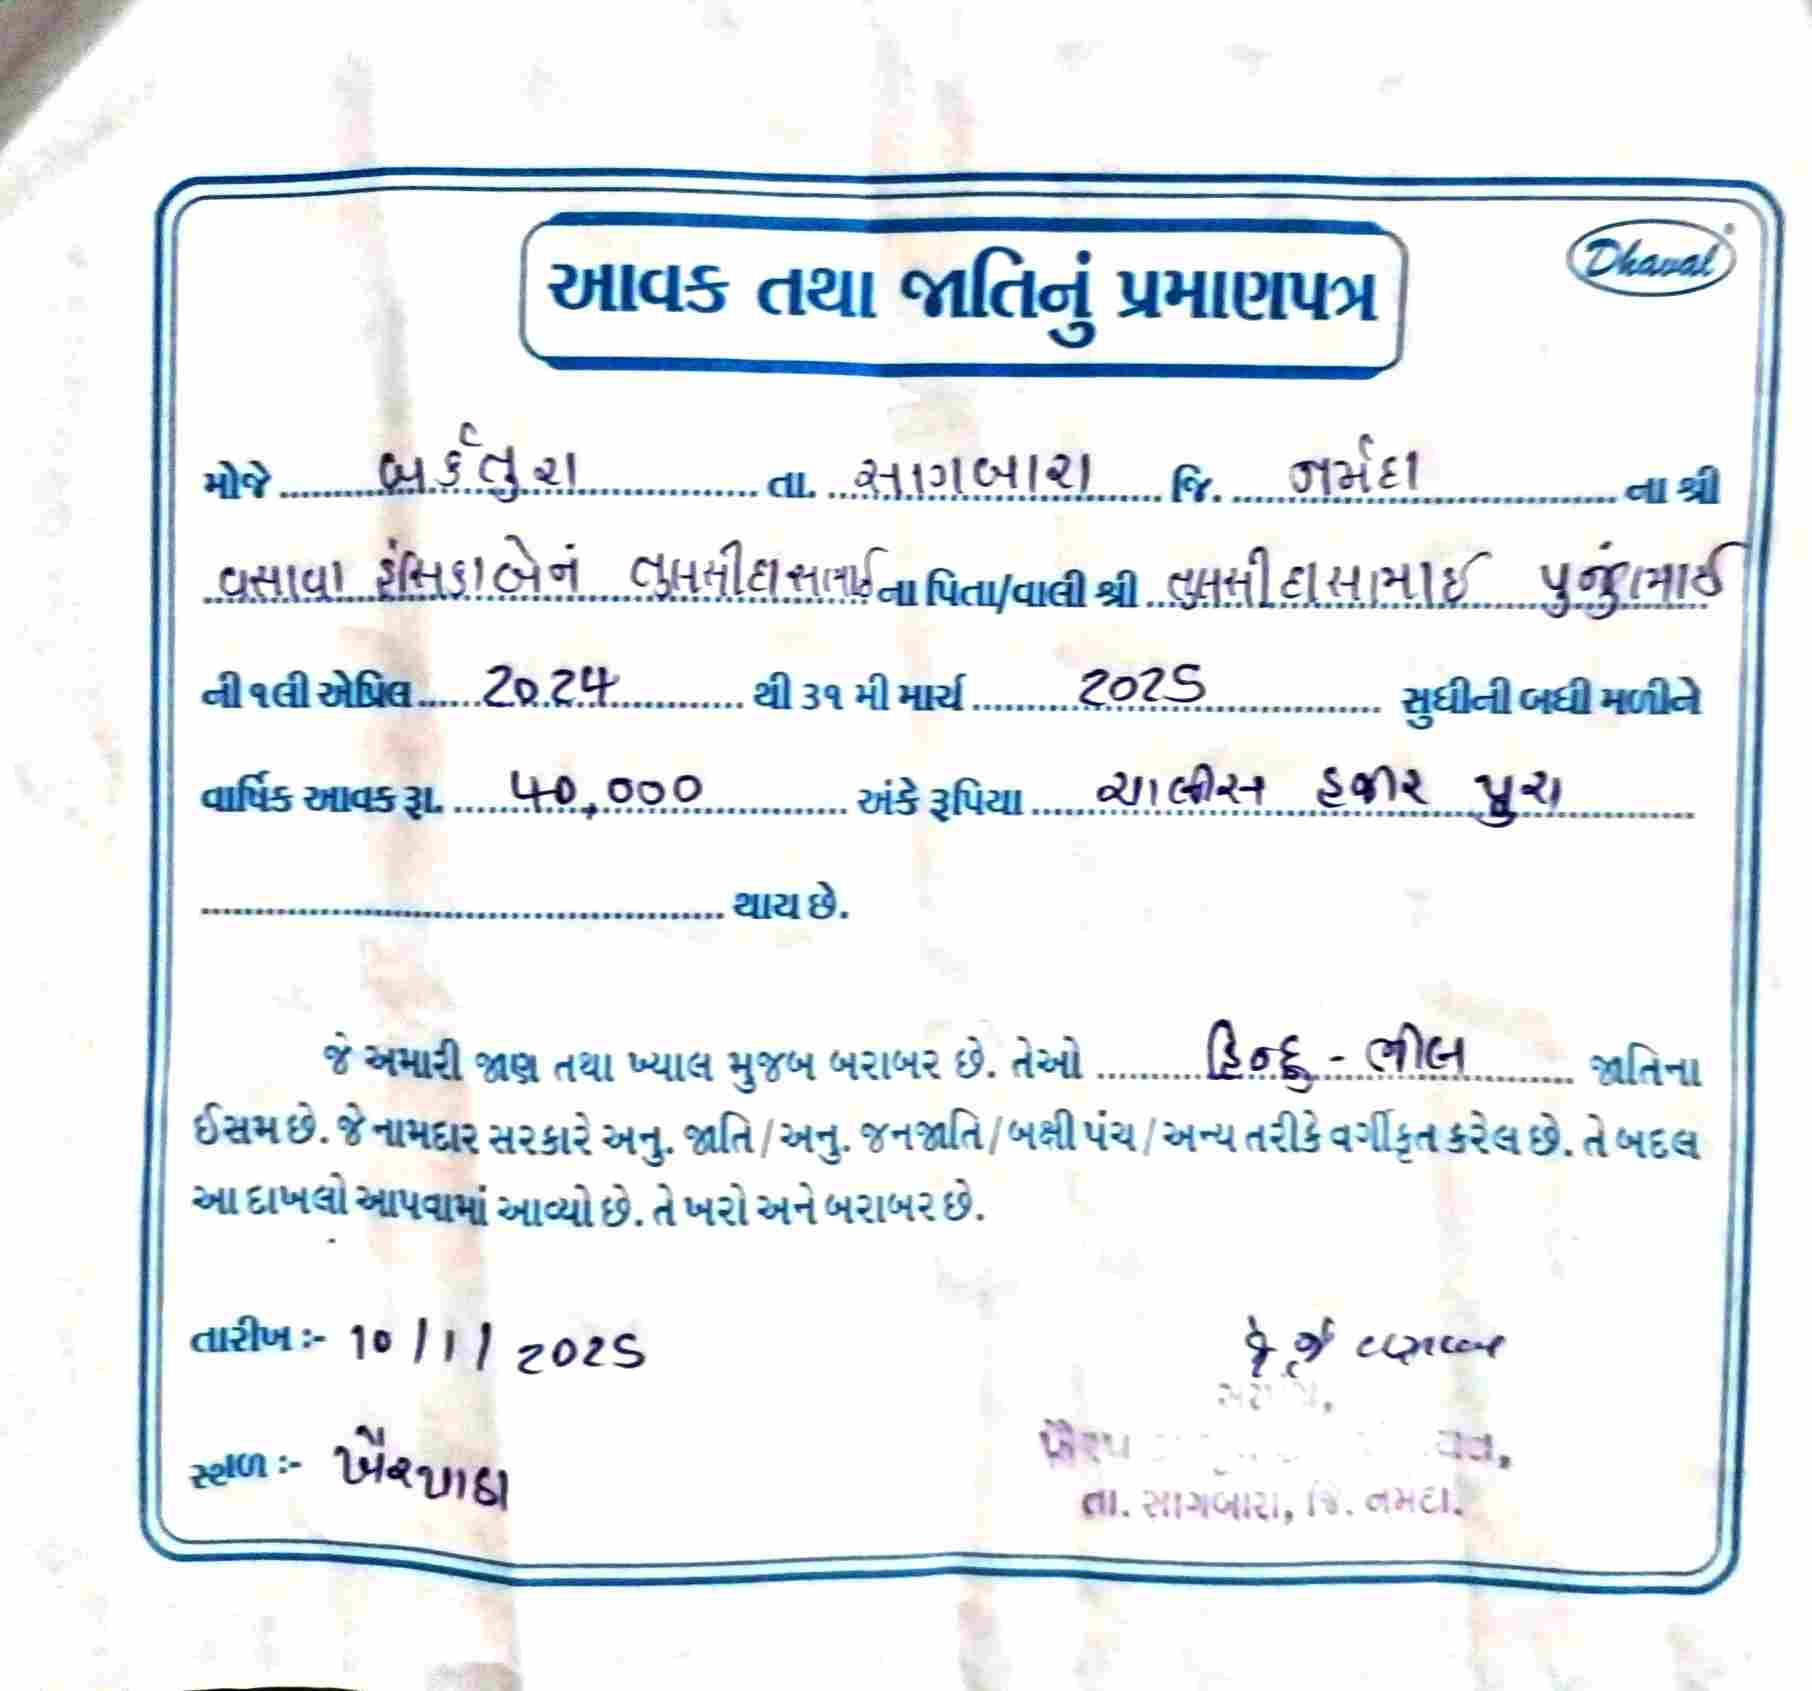 Dhaval
આવક તથા જાતિનું પ્રમાણપત્ર
મોજે બર્કતુરા તા. સાગબારા જિ. નર્મદા ના શ્રી
વસાવા હંસિકાબેન તુલસીદાસભાઈ ના પિતા/વાલી શ્રી તુલસીદાસભાઈ પુનુંભાઈ
ની ૧લી એપ્રિલ 2024 થી ૩૧ મી માર્ચ 2025 સુધીની બધી મળીને
વાર્ષિક આવક રૂા. 40,000 અંકે રૂપિયા ચાલીસ હજાર પુરા
થાય છે.
જે અમારી જાણ તથા ખ્યાલ મુજબ બરાબર છે. તેઓ હિન્દુ - ભીલ જાતિના
ઈસમ છે. જે નામદાર સરકારે અનુ. જાતિ/અનુ. જનજાતિ/બક્ષી પંચ/અન્ય તરીકે વર્ગીકૃત કરેલ છે. તે બદલ
આ દાખલો આપવામાં આવ્યો છે. તે ખરો અને બરાબર છે.
તારીખ :- 10/1/2025
સ્થળ :- ખૈરપાડા
તા. સાગબારા, જિ. નર્મદા.